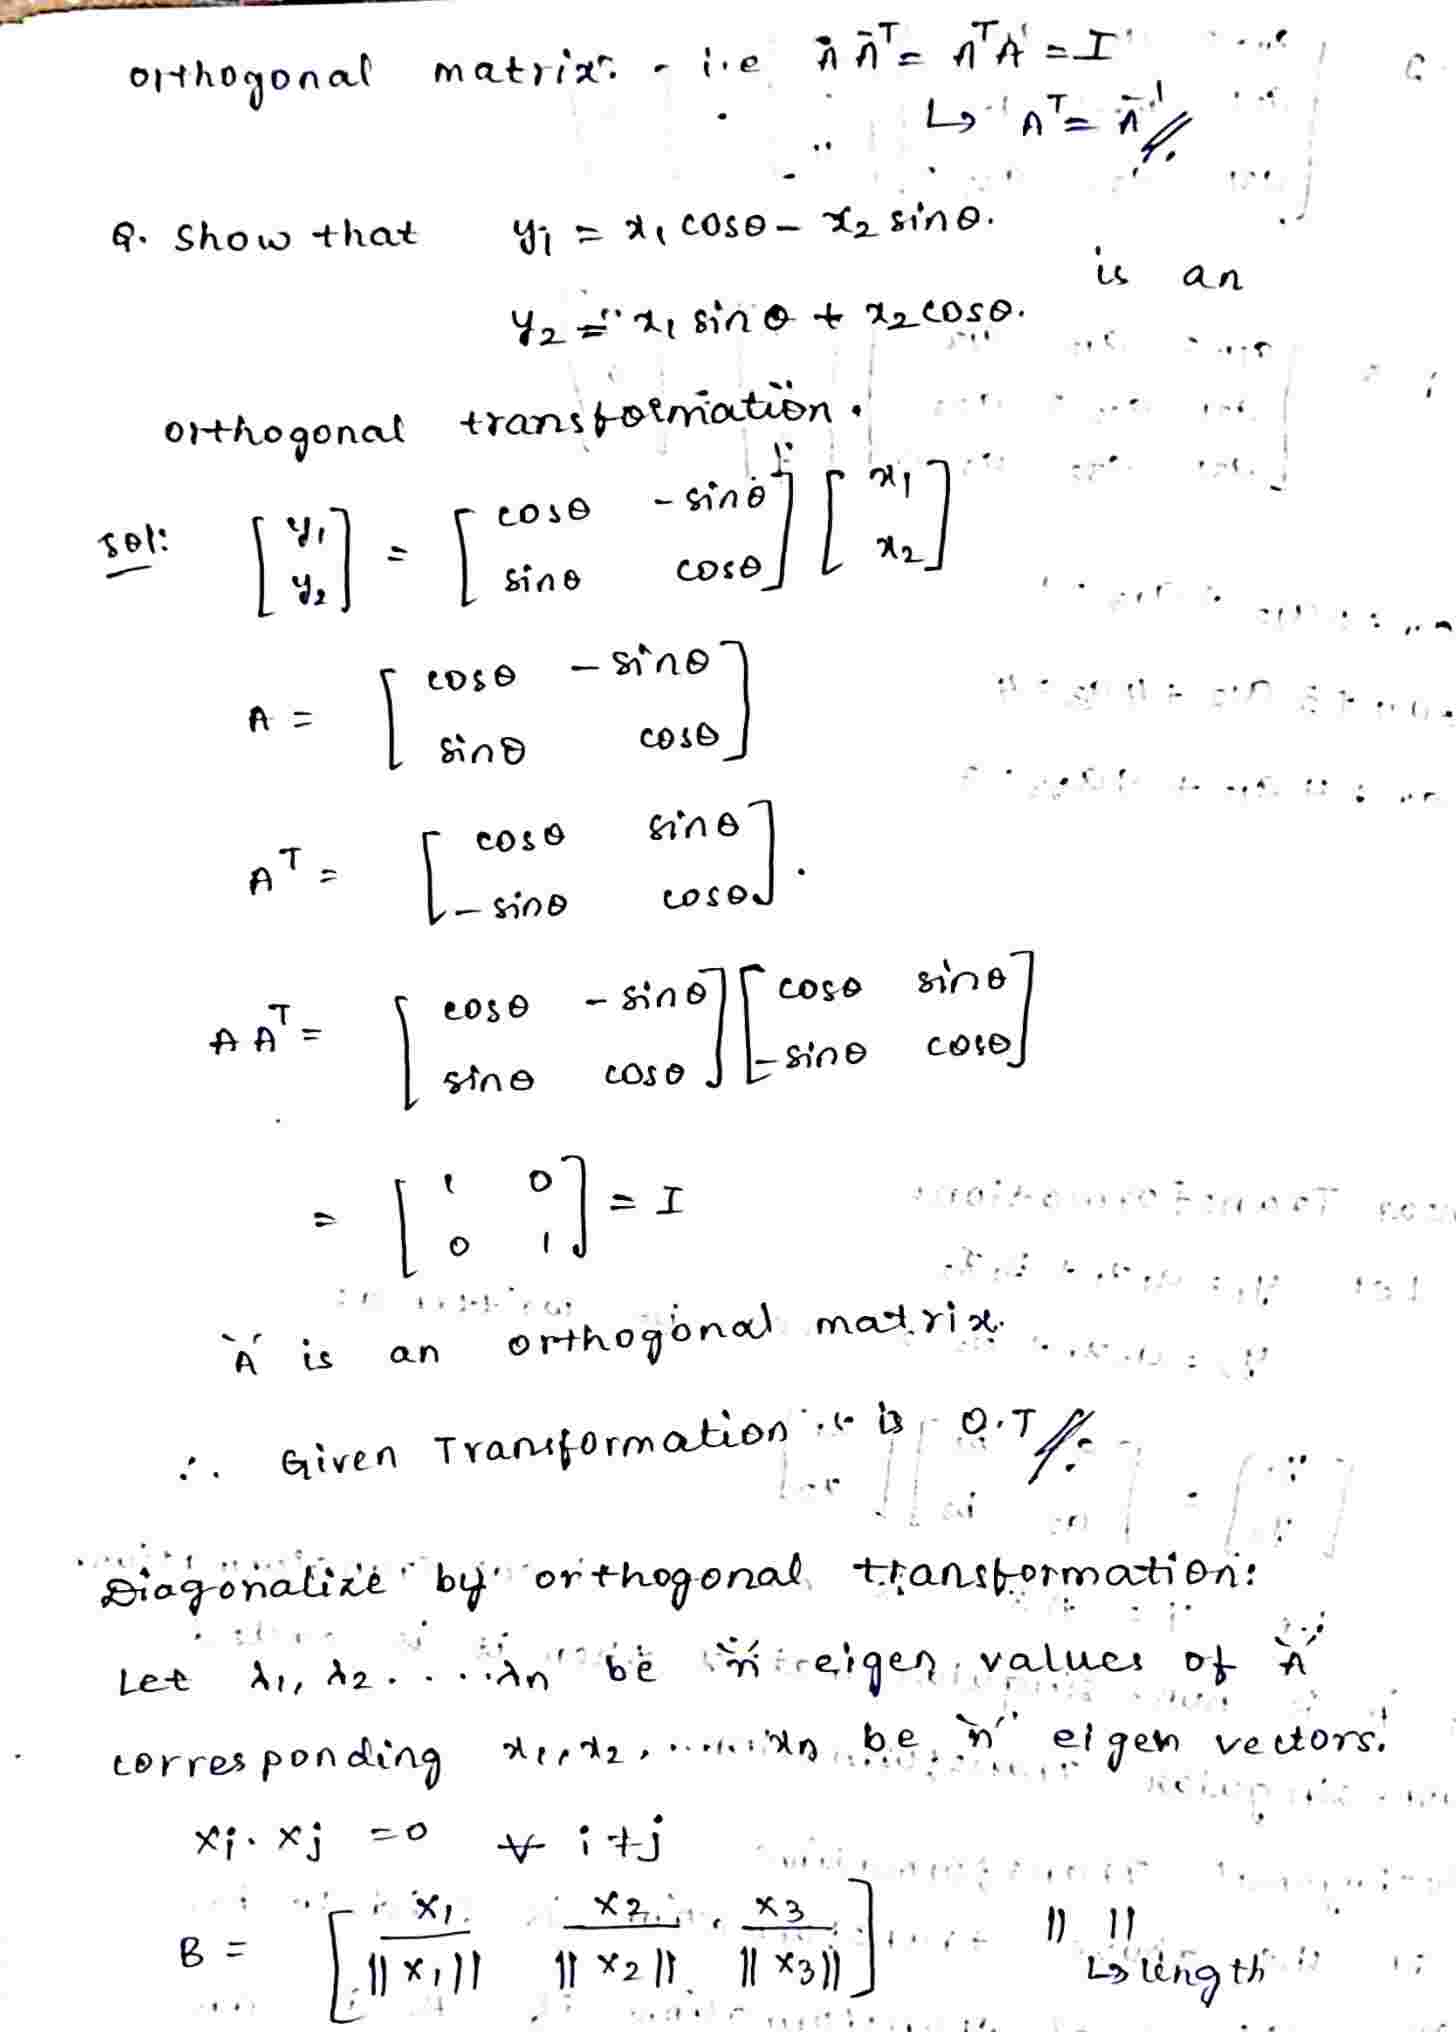 orthogonal matrix: - i.e A Aᵀ = AᵀA = I
↳ Aᵀ = A⁻¹//.
Q. Show that y₁ = x₁ cosθ - x₂ sinθ.
is an
y₂ = x₁ sinθ + x₂ cosθ.
orthogonal transformation.
Sol: [y₁ y₂] = [cosθ -sinθ sinθ cosθ] [x₁ x₂]
A = [cosθ -sinθ sinθ cosθ]
Aᵀ = [cosθ sinθ -sinθ cosθ].
A Aᵀ = [cosθ -sinθ sinθ cosθ] [cosθ sinθ -sinθ cosθ]
= [1 0 0 1] = I
`A´ is an orthogonal matrix.
∴ Given Transformation is O.T//.
Diagonalize by orthogonal transformation:
Let λ₁, λ₂.....λn be `n´ eigen values of `A´
corresponding x₁, x₂, ......xn be `n´ eigen vectors.
xi. xj = 0 ∀ i≠j
B = [x₁/||x₁|| x₂/||x₂|| x₃/||x₃||] || ||
↳ length